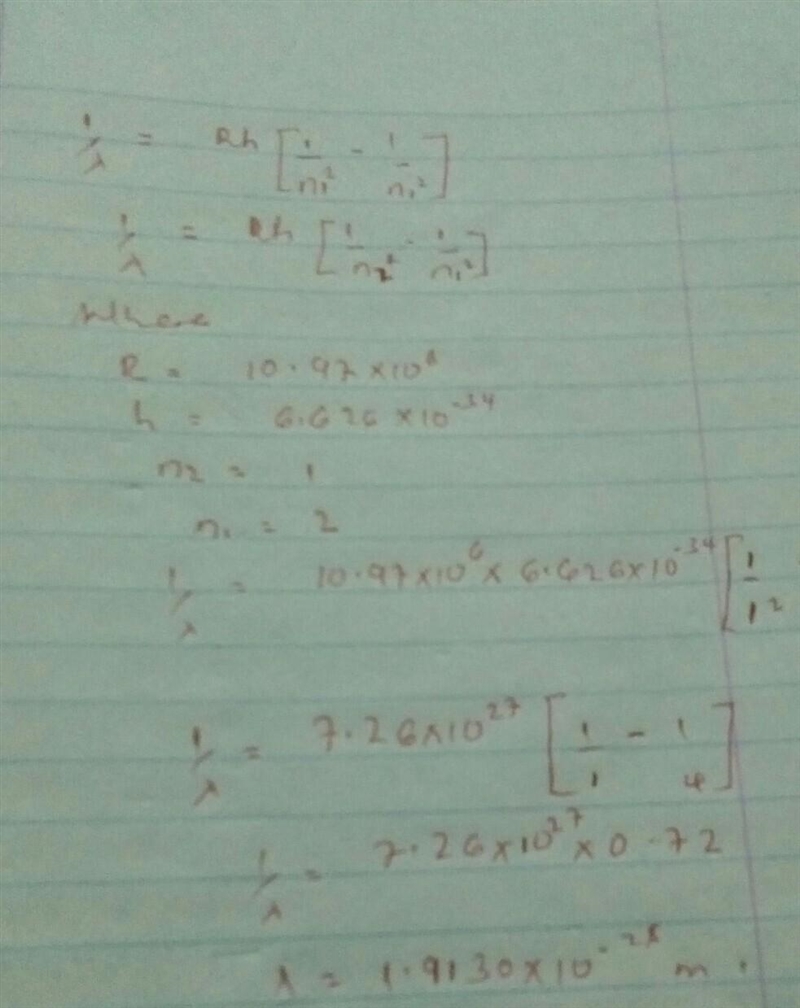 1/λ = Rh [1/n₁² - 1/n₁²]
1/λ = Rh [1/n₂² - 1/n₁²]
Where
R = 10.97 × 10⁶
h = 6.626 × 10⁻³⁴
n₂ = 1
n₁ = 2
1/λ = 10.97×10⁶ × 6.626×10⁻³⁴ [1/1²
1/λ = 7.26×10²⁷ [1/1 - 1/4]
1/λ = 7.26×10²⁷ × 0.72
λ = 1.9130×10⁻²⁸ m.